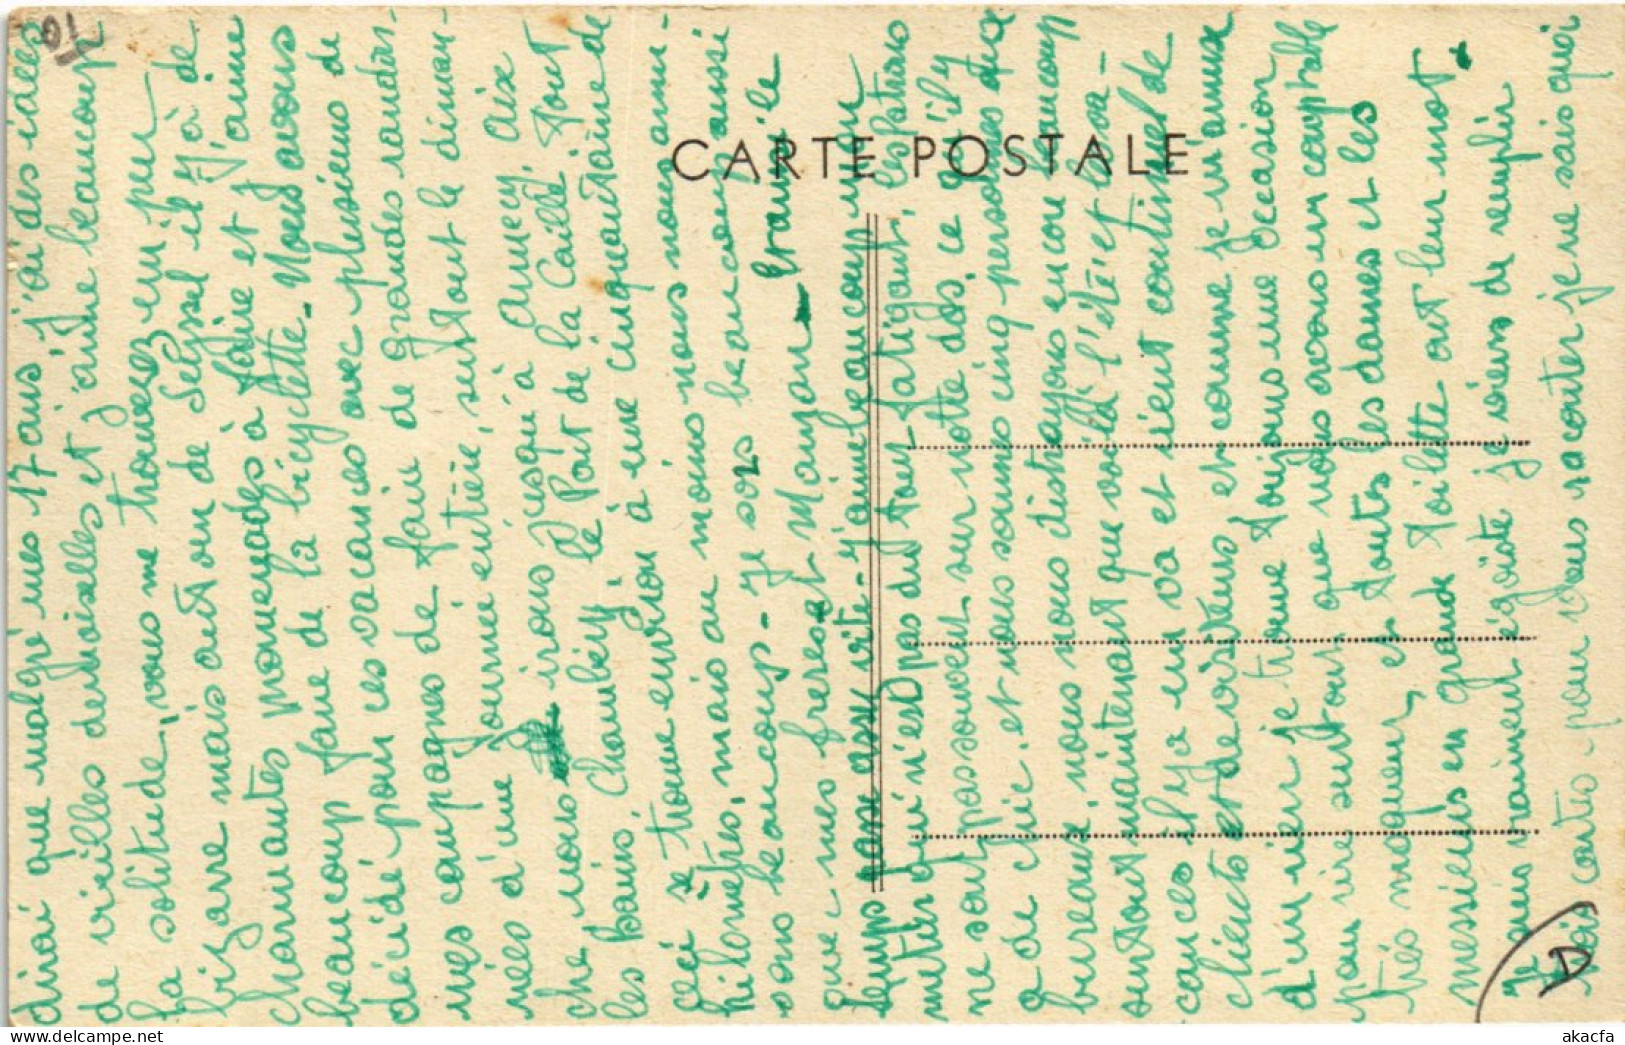 dirai que malgré mes 17 ans j'ai des idées
de vieilles demoiselles et j'aime beaucoup
la solitude, vous me trouverez un peu
bizarre mais autour de Seyssel il y a de
charmantes promenades à faire et j'aime
beaucoup faire de la bicyclette. Nous avons
décidé pour ces vacances avec plusieurs de
mes compagnes de faire de grandes randon-
nées d'une journée entière, surtout le diman-
che nous irons jusqu'à Annecy, Aix
les Bains, Chambéry, le Pont de la Caille. Tout
ceci se trouve environ à une cinquantaine de
kilomètres, mais au moins nous nous amu-
sons beaucoup - je sors beaucoup aussi
que mes frères et Manzon - travaille
temps passe assez vite - j'aime beaucoup mon
métier qui n'est pas du tout fatigant, les patrons
ne sont pas souvent sur notre dos, ce qu'il y
a de chic, et nous sommes cinq personnes aux
bureaux, nous nous distrayons encore beaucoup
surtout maintenant que voilà l'été et les va-
cances il y a un va et vient continuel de
clients et de visiteurs et comme je m'amuse
d'un rien je trouve toujours une occasion
pour rire surtout que nous avons un comptable
très moqueur, et toutes les dames et les
messieurs en grande toilette ont leur mot.
Je suis vraiment égoïste je viens de remplir
trois cartes pour vous raconter je ne sais quoi
CARTE POSTALE
D
akacfa